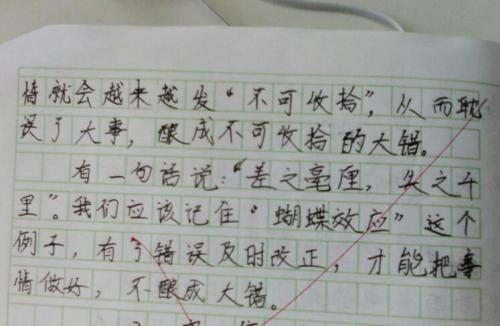 情就会越来越发“不可收拾”，从而耽
误了大事，酿成不可收拾的大错。
有一句话说：“差之毫厘，失之千
里”。我们应该记住“蝴蝶效应”这个
例子，有了错误及时改正，才能把事
情做好，不酿成大错。